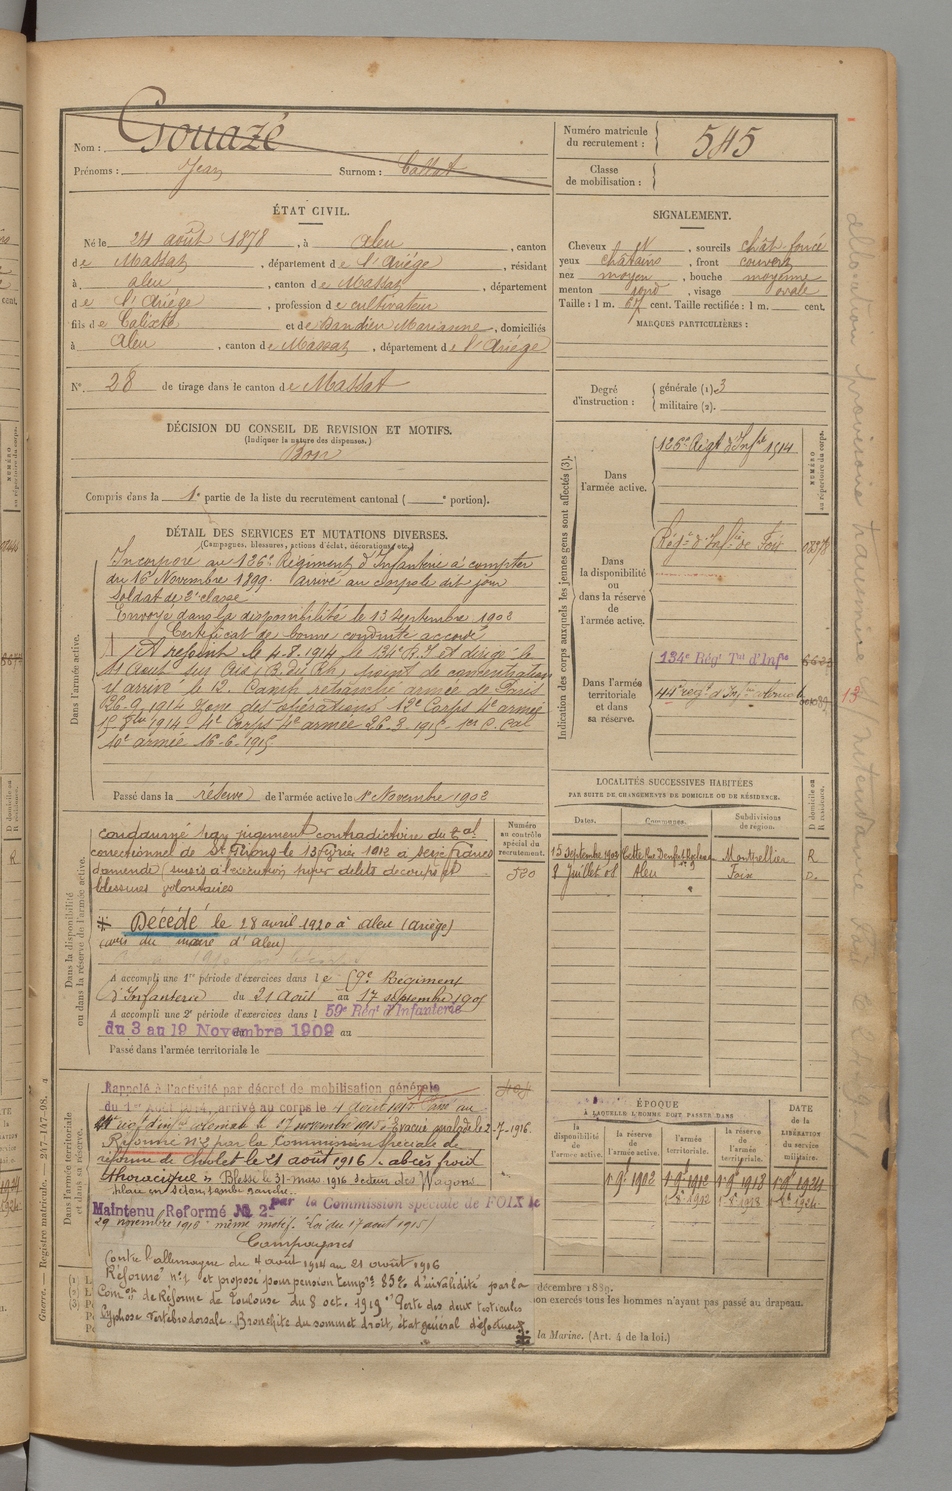 Nom : Gouazé
Prénoms : Jean Surnom :
Numéro matricule du recrutement : 545
Classe de mobilisation :
ÉTAT CIVIL.
Né le 24 août 1878, à Aleu, canton
de Massat, département de l'Ariège, résidant
à Aleu, canton de Massat, département
de l'Ariège, profession de cultivateur
fils de Calixte et de Dandieu Marianne, domiciliés
à Aleu, canton de Massat, département de l'Ariège
N° 28 de tirage dans le canton de Massat
SIGNALEMENT.
Cheveux N, sourcils chât-foncé
yeux châtains, front couvert
nez moyen, bouche moyenne
menton rond, visage ovale
Taille : 1 m. 67 cent. Taille rectifiée : 1 m. cent.
MARQUES PARTICULIÈRES :
Degré d'instruction : générale (1) 3
militaire (2).
DÉCISION DU CONSEIL DE REVISION ET MOTIFS.
(Indiquer la nature des dispenses.)
Bon
Compris dans la 1e partie de la liste du recrutement cantonal ( e portion).
DÉTAIL DES SERVICES ET MUTATIONS DIVERSES.
(Campagnes, blessures, actions d'éclat, décorations, etc.)
Dans l'armée active.
Incorporé au 126e Régiment d'Infanterie à compter
du 16 Novembre 1899. arrivé au corps le dit jour
Soldat de 2e classe
Envoyé dans la disponibilité le 13 Septembre 1902
Certificat de bonne conduite accordé
A rejoint le 4.8.1914 le 134e R.I et dirigé le
11 Août sur Aix (B. du Rh) point de concentration
y arrive le 12. Camp retranché armée de Paris
26.9.1914 Zone des opérations 12e Corps 4e armée
1914. 4e Corps 4e armée 26-3-1915. 1er C. Cal
10e armée 16-6-1915
Passé dans la réserve de l'armée active le 1er Novembre 1902
Dans la disponibilité ou dans la réserve de l'armée active.
condamné par jugement contradictoire du tal
correctionnel de St Girons le 13 février 1912 à seize francs
d'amende (sursis à l'exécution) pour délits de coups et
blessures volontaires
Décédé le 28 avril 1920 à Aleu (Ariège)
(avis du maire d'Aleu)
A accompli une 1re période d'exercices dans le 59e Régiment
d'Infanterie du 21 Août au 17 septembre 1905
A accompli une 2e période d'exercices dans l 59e Régt d'Infanterie
du 3 au 19 Novembre 1909 au
Passé dans l'armée territoriale le
Numéro au contrôle spécial du recrutement.
520
Dans l'armée territoriale et dans sa réserve.
Rappelé à l'activité par décret de mobilisation générale
du 1er Août 1914, arrivé au corps le 4 août 1914 Passé au
44e régt d'infie coloniale le 17 novembre 1915 Évacué malade le 2-7-1916.
Réformé n°2 par la Commission spéciale de
réforme de Cholet le 21 août 1916 "abcès froid
thoracique" Blessé le 31 mars 1916 secteur des Wagons
plaie en séton jambe gauche.
Maintenu Réformé N° 2 par la Commission spéciale de FOIX le
29 novembre 1916 même motif. Loi du 17 août 1915)
Campagnes
Contre l'allemagne du 4 août 1914 au 21 août 1916
Réformé n°1 et proposé pour pension tempre 85% d'invalidité par la
Comon de Réforme de Toulouse du 8 oct. 1919 "Perte des deux testicules
Cyphose vertébro dorsale. Bronchite du sommet droit, état général défectueux.
Indication des corps auxquels les jeunes gens sont affectés (3).
Dans l'armée active.
126e Régt d'Infie 1914
Dans la disponibilité ou dans la réserve de l'armée active.
Régt d'Infie de Foix
Dans l'armée territoriale et dans sa réserve.
134e Rég Tal d'Infie
44e régt d'Infie coloniale
13
NUMÉRO au répertoire du corps.
LOCALITÉS SUCCESSIVES HABITÉES
PAR SUITE DE CHANGEMENTS DE DOMICILE OU DE RÉSIDENCE.
Dates. Communes. Subdivisions de région. D domicile ou R résidence.
15 Septembre 1902 Cette Rue Denfert Rochereau Montpellier R
8 Juillet 08 Aleu Foix D.
ÉPOQUE
À LAQUELLE L'HOMME DOIT PASSER DANS
DATE de la LIBÉRATION du service militaire.
la disponibilité de l'armée active.
la réserve de l'armée active.
l'armée territoriale.
la réserve de l'armée territoriale.
1er 9bre 1902 1er 9bre 1912 1er 9bre 1918 1er 9bre 1924
1912 1918 1924
décembre 1889.
non exercés tous les hommes n'ayant pas passé au drapeau.
la Marine. (Art. 4 de la loi.)
Guerre. — Registre matricule. 247-147-98. 4
allocation provisoire